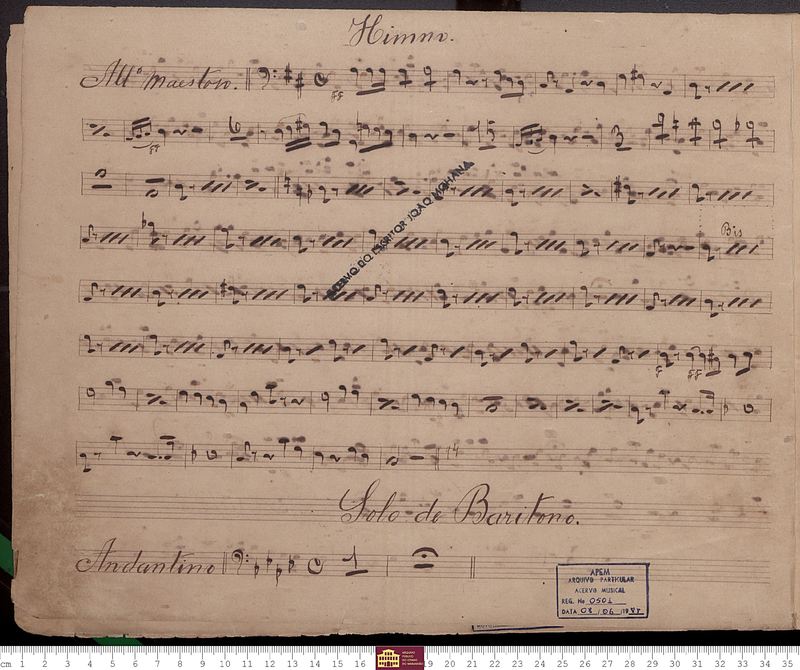 Himno.
All.º maestoso.
ff
ff
6
3
ACERVO DO ESCRITOR JOÃO MOHANA
Bis
f ff
14
Solo de Baritono.
Andantino
1
APEM
ARQUIVO PARTICULAR
ACERVO MUSICAL
REG. No 0501
DATA 03 / 06 / 19
cm 1 2 3 4 5 6 7 8 9 10 11 12 13 14 15 16 19 20 21 22 23 24 25 26 27 28 29 30 31 32 33 34 35